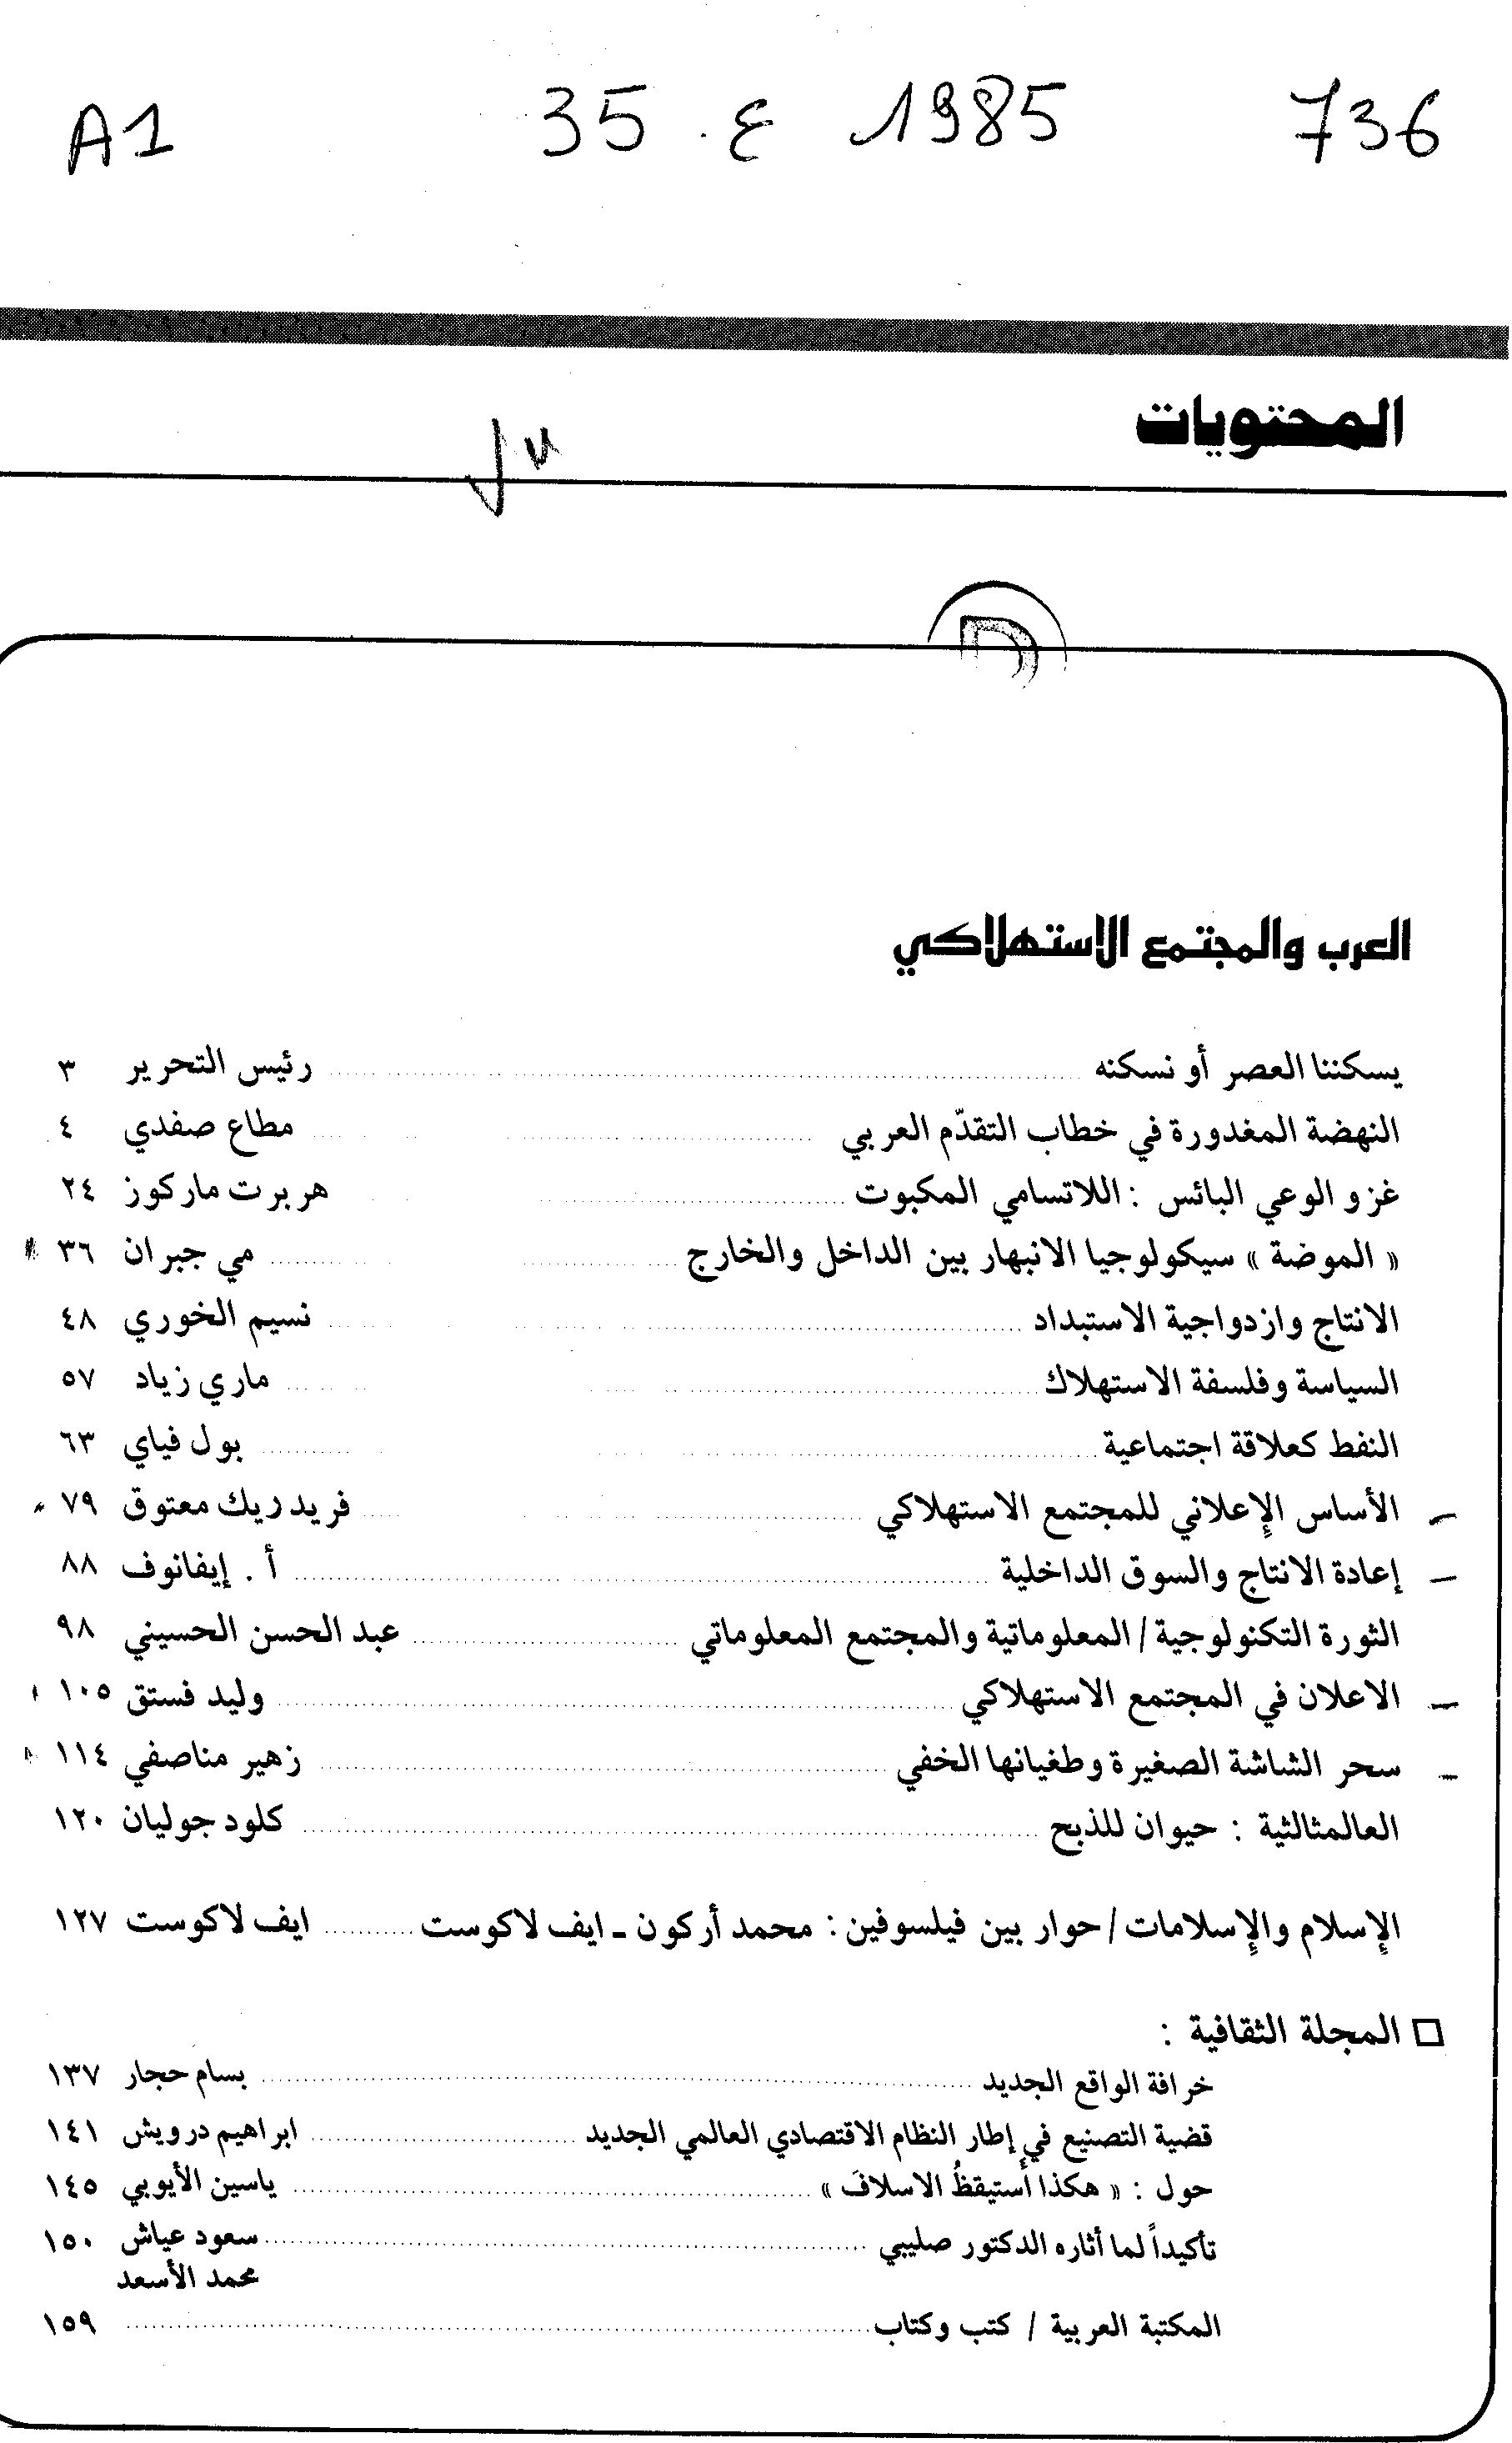 736 1985 ع. 35 A1
المحتويات
العرب والمجتمع الاستهلاكي
يسكننا العصر أو نسكنه رئيس التحرير ٣
النهضة المغدورة في خطاب التقدّم العربي مطاع صفدي ٤
غزو الوعي البائس : اللاتسامي المكبوت هربرت ماركوز ٢٤
« الموضة » سيكولوجيا الانبهار بين الداخل والخارج مي جبران ٣٦
الانتاج وازدواجية الاستبداد نسيم الخوري ٤٨
السياسة وفلسفة الاستهلاك ماري زياد ٥٧
النفط كعلاقة اجتماعية بول فياي ٦٣
الأساس الإعلاني للمجتمع الاستهلاكي فريدريك معتوق ٧٩
إعادة الانتاج والسوق الداخلية أ . إيفانوف ٨٨
الثورة التكنولوجية / المعلوماتية والمجتمع المعلوماتي عبد الحسن الحسيني ٩٨
الاعلان في المجتمع الاستهلاكي وليد فستق ١٠٥
سحر الشاشة الصغيرة وطغيانها الخفي زهير مناصفي ١١٤
العالمثالثية : حيوان للذبح كلود جوليان ١٢٠
الإسلام والإسلامات / حوار بين فيلسوفين : محمد أركون ـ ايف لاكوست ايف لاكوست ١٢٧
□ المجلة الثقافية :
خرافة الواقع الجديد بسام حجار ١٣٧
قضية التصنيع في إطار النظام الاقتصادي العالمي الجديد ابراهيم درويش ١٤١
حول : « هكذا أستيقظُ الاسلافَ » ياسين الأيوبي ١٤٥
تأكيداً لما أثاره الدكتور صليبي سعود عياش ١٥٠
محمد الأسعد
المكتبة العربية / كتب وكتاب ١٥٩